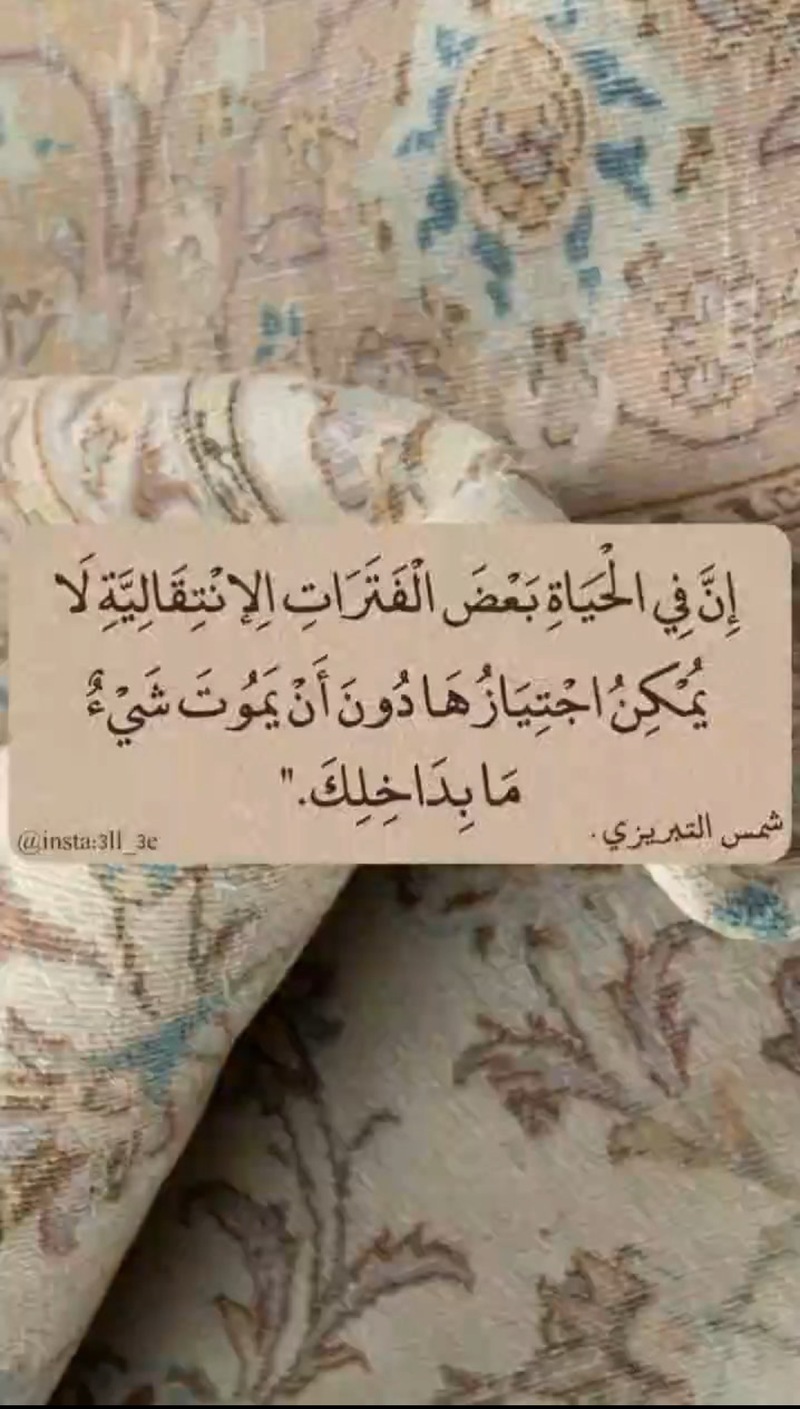 إِنَّ فِي الْحَيَاةِ بَعْضَ الْفَتَرَاتِ الِإنْتِقَالِيَّةِ لَا
يُمْكِنُ اجْتِيَازُهَا دُونَ أَنْ يَمُوتَ شَيْءٌ
مَا بِدَاخِلِكَ."
شمس التبريزي.
@insta:3ll_3e